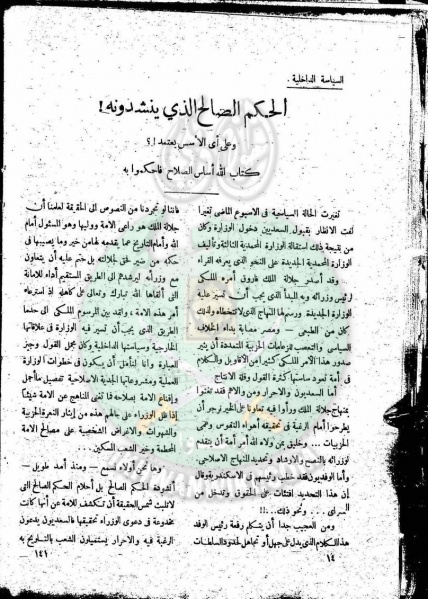 السياسة الداخلية .
الحكم الصالح الذي ينشدونه !
وعلى أى الأسس يعتمد !؟
كتاب الله أساس الصلاح فاحكموا به
تغيرت الحالة السياسية فى الاسبوع الماضى تغيرا
لفت الانظار بقبول السعديين دخول الوزارة وكان
من نتيجة ذلك استقالة الوزارة المحمدية الثالثة وتأليف
الوزارة المحمدية الجديدة على النحو الذى يعرفه القراء
وقد أصدر جلالة الملك فاروق أمره الملكى
لرئيس وزرائه وبه المبدأ الذى يجب أن تسير عليه
الوزارة الجديدة ورسم لها المنهاج الذى لا تتخطاه ولذلك
كان من الطبيعى — ومصر مصابة بداء الخلاف
السياسى والتعصب للزعامات الحزبية المتعددة أن يثير
صدور هذا الأمر الملكى كثير من الأقاويل والكلام
فى أمة تعود ساستها كثرة القول وقلة الانتاج
أما السعديون والاحرار ومن والاهم فقد تغنوا
بمنهاج جلالة الملك ورأوا فيه تعاونا على الخير نرجو أن
يطرحوا أمام الرغبة فى تحقيقه أهواء النفوس وحمى
الحزبيات ... وخليق بمن ولاه الله أمر أمة أن يتقدم
لوزرائه بالنصح والارشاد وتحديد المنهاج الاصلاحى.
وأما الوفديون فقد خطب رئيسهم فى الاسكندرية
إن هذا التحديد افتئات على الحقوق وتدخل من
السراى . . . ونحو ذلك ...!!
ومن العجيب جدا أن يتكلم رفعة رئيس الوفد
هذا الكلام الذى يدل على جهل أو تجاهل لحدود السلطات
١٤
فاننا لو تجردنا من النصوص الى الحقيقة لعلمنا أن
جلالة الملك هو راعى الامة ووليها وهو المسئول أمام
الله وأمام التاريخ عما يقدمه لها من خير وما يصيبها فى
حكمه من ضير لحق لجلالته بل حتم عليه أن يتعاون
مع وزرائه ليرشدهم الى الطريق المستقيم أداء للأمانة
التى ألقاها الله تبارك وتعالى على كاهله اذ استرعاه
أمر هذه الامة ، ولقد بين المرسوم الملكى الى حدما
الطريق الذى يجب أن تسير فيه الوزارة فى علاقاتها
الخارجية وسياستها الداخلية وكان مجمل القول وجيز
العبارة وانا لنأمل أن يكون فى خطوات الوزارة
العملية ومشروعاتها الجدية الاصلاحية تفصيل ما أجمل
واقناع الامة بصلاحه فما تغنى المناهج عن الامة شيئا
إذا ظل الوزراء على حالهم هذه من إيثار النعرة الحزبية
والشهوات والاغراض الشخصية على مصالح الامة
المحطمة وخير الشعب المسكين...
وها نحن أولاء نسمع — ومنذ أمد طويل —
أنشودة الحكم الصالح بل أحلام الحكم الصالح التى
لا تلبث شمس الحقيقة أن تتكشف للامة عن أنها كانت
مخدوعة فى دعوى الوزراء تحقيقها فالسعديون يدعون
الرغبة فيه والاحرار يستميلون الشعب بالتلويح به
١٤١